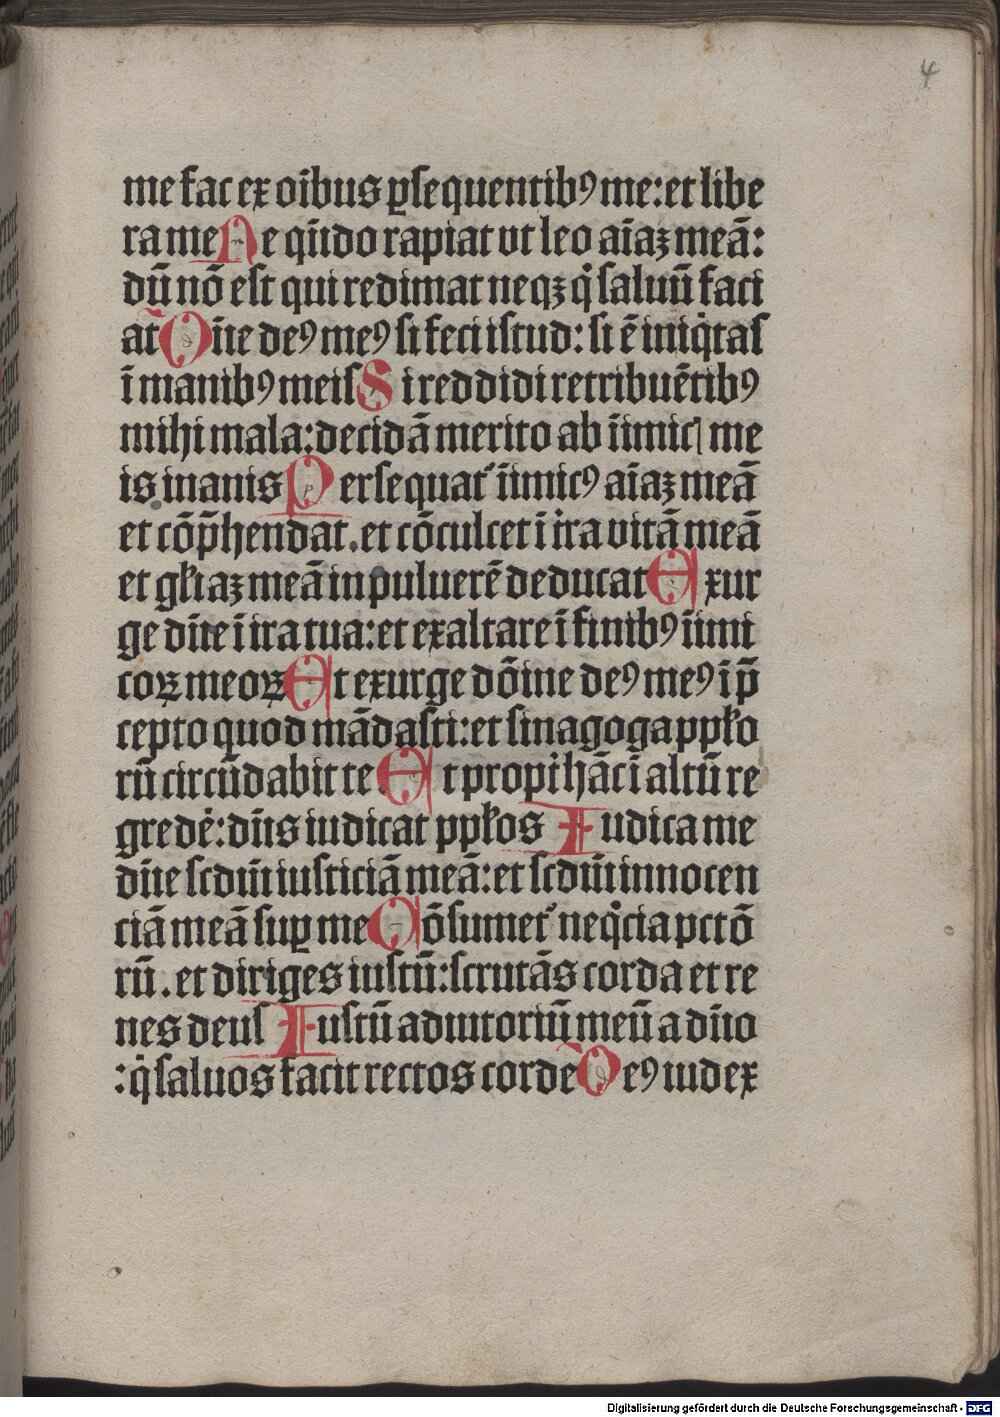 4
me fac ex oībus ꝑsequentibꝰ me: et libe
ra me Ne qn̄do rapiat vt leo aīaꝫ meā:
dū nō est qui redimat neqꝫ qͥ saluū faci
at Dn̄e deꝰ meꝰ si feci istud: si ē iniqͥtas
ī manibꝰ meis Si reddidi retribuētibꝰ
mihi mala: decidā merito ab īimicꝭ me
is inanis Persequať īimicꝰ aīaꝫ meā
et cōp̄hendat. et cōculcet ī ťra vitā meā
et gƚiaꝫ meā in puluerē deducat Exur
ge dn̄e ī ira tua: et exaltare ī finibꝰ īimi
coꝝ meoꝝ Et exurge dōine deꝰ meꝰ ī p̄
cepto quod mādasti: et sinagoga ppƚo
rū circūdabit te Et propť hāc ī altū re
gredē: dn̄s iudicat ppƚos Iudica me
dn̄e scdm̄ iusticiā meā: et scdm̄ innocen
ciā meā suꝑ me Cōsumeť neqͥcia pctō
rū. et diriges iustū: scrutās corda et re
nes deus Iustū adiutoriū meū a dn̄o
: qͥ saluos facit rectos corde Deꝰ iudex
Digitalisierung gefördert durch die Deutsche Forschungsgemeinschaft - DFG